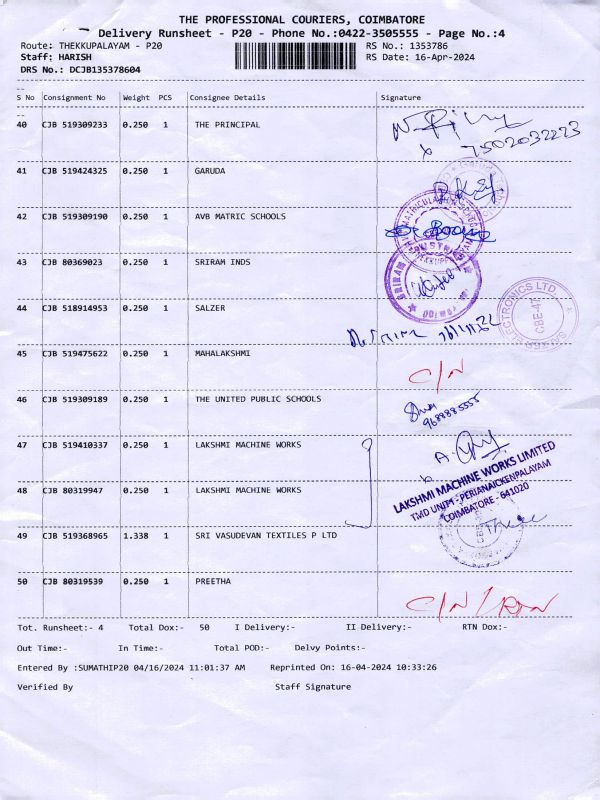 THE PROFESSIONAL COURIERS, COIMBATORE
Delivery Runsheet - P20 - Phone No.:0422-3505555 - Page No.:4
Route: THEKKUPALAYAM - P20 RS No.: 1353786
Staff: HARISH RS Date: 16-Apr-2024
DRS No.: DCJB135378604
S No Consignment No Weight PCS Consignee Details Signature
40 CJB 519309233 0.250 1 THE PRINCIPAL
7502032223
41 CJB 519424325 0.250 1 GARUDA
42 CJB 519309190 0.250 1 AVB MATRIC SCHOOLS
43 CJB 80369023 0.250 1 SRIRAM INDS
44 CJB 518914953 0.250 1 SALZER
SALZER ELECTRONICS LTD
CBE-47
45 CJB 519475622 0.250 1 MAHALAKSHMI
C/N
46 CJB 519309189 0.250 1 THE UNITED PUBLIC SCHOOLS
47 CJB 519410337 0.250 1 LAKSHMI MACHINE WORKS
48 CJB 80319947 0.250 1 LAKSHMI MACHINE WORKS
LAKSHMI MACHINE WORKS LIMITED
TMD UNIT - PERIANAICKENPALAYAM
COIMBATORE - 641020
49 CJB 519368965 1.338 1 SRI VASUDEVAN TEXTILES P LTD
50 CJB 80319539 0.250 1 PREETHA
C/N / RTN
Tot. Runsheet:- 4 Total Dox:- 50 I Delivery:- II Delivery:- RTN Dox:-
Out Time:- In Time:- Total POD:- Delvy Points:-
Entered By :SUMATHIP20 04/16/2024 11:01:37 AM Reprinted On: 16-04-2024 10:33:26
Verified By Staff Signature